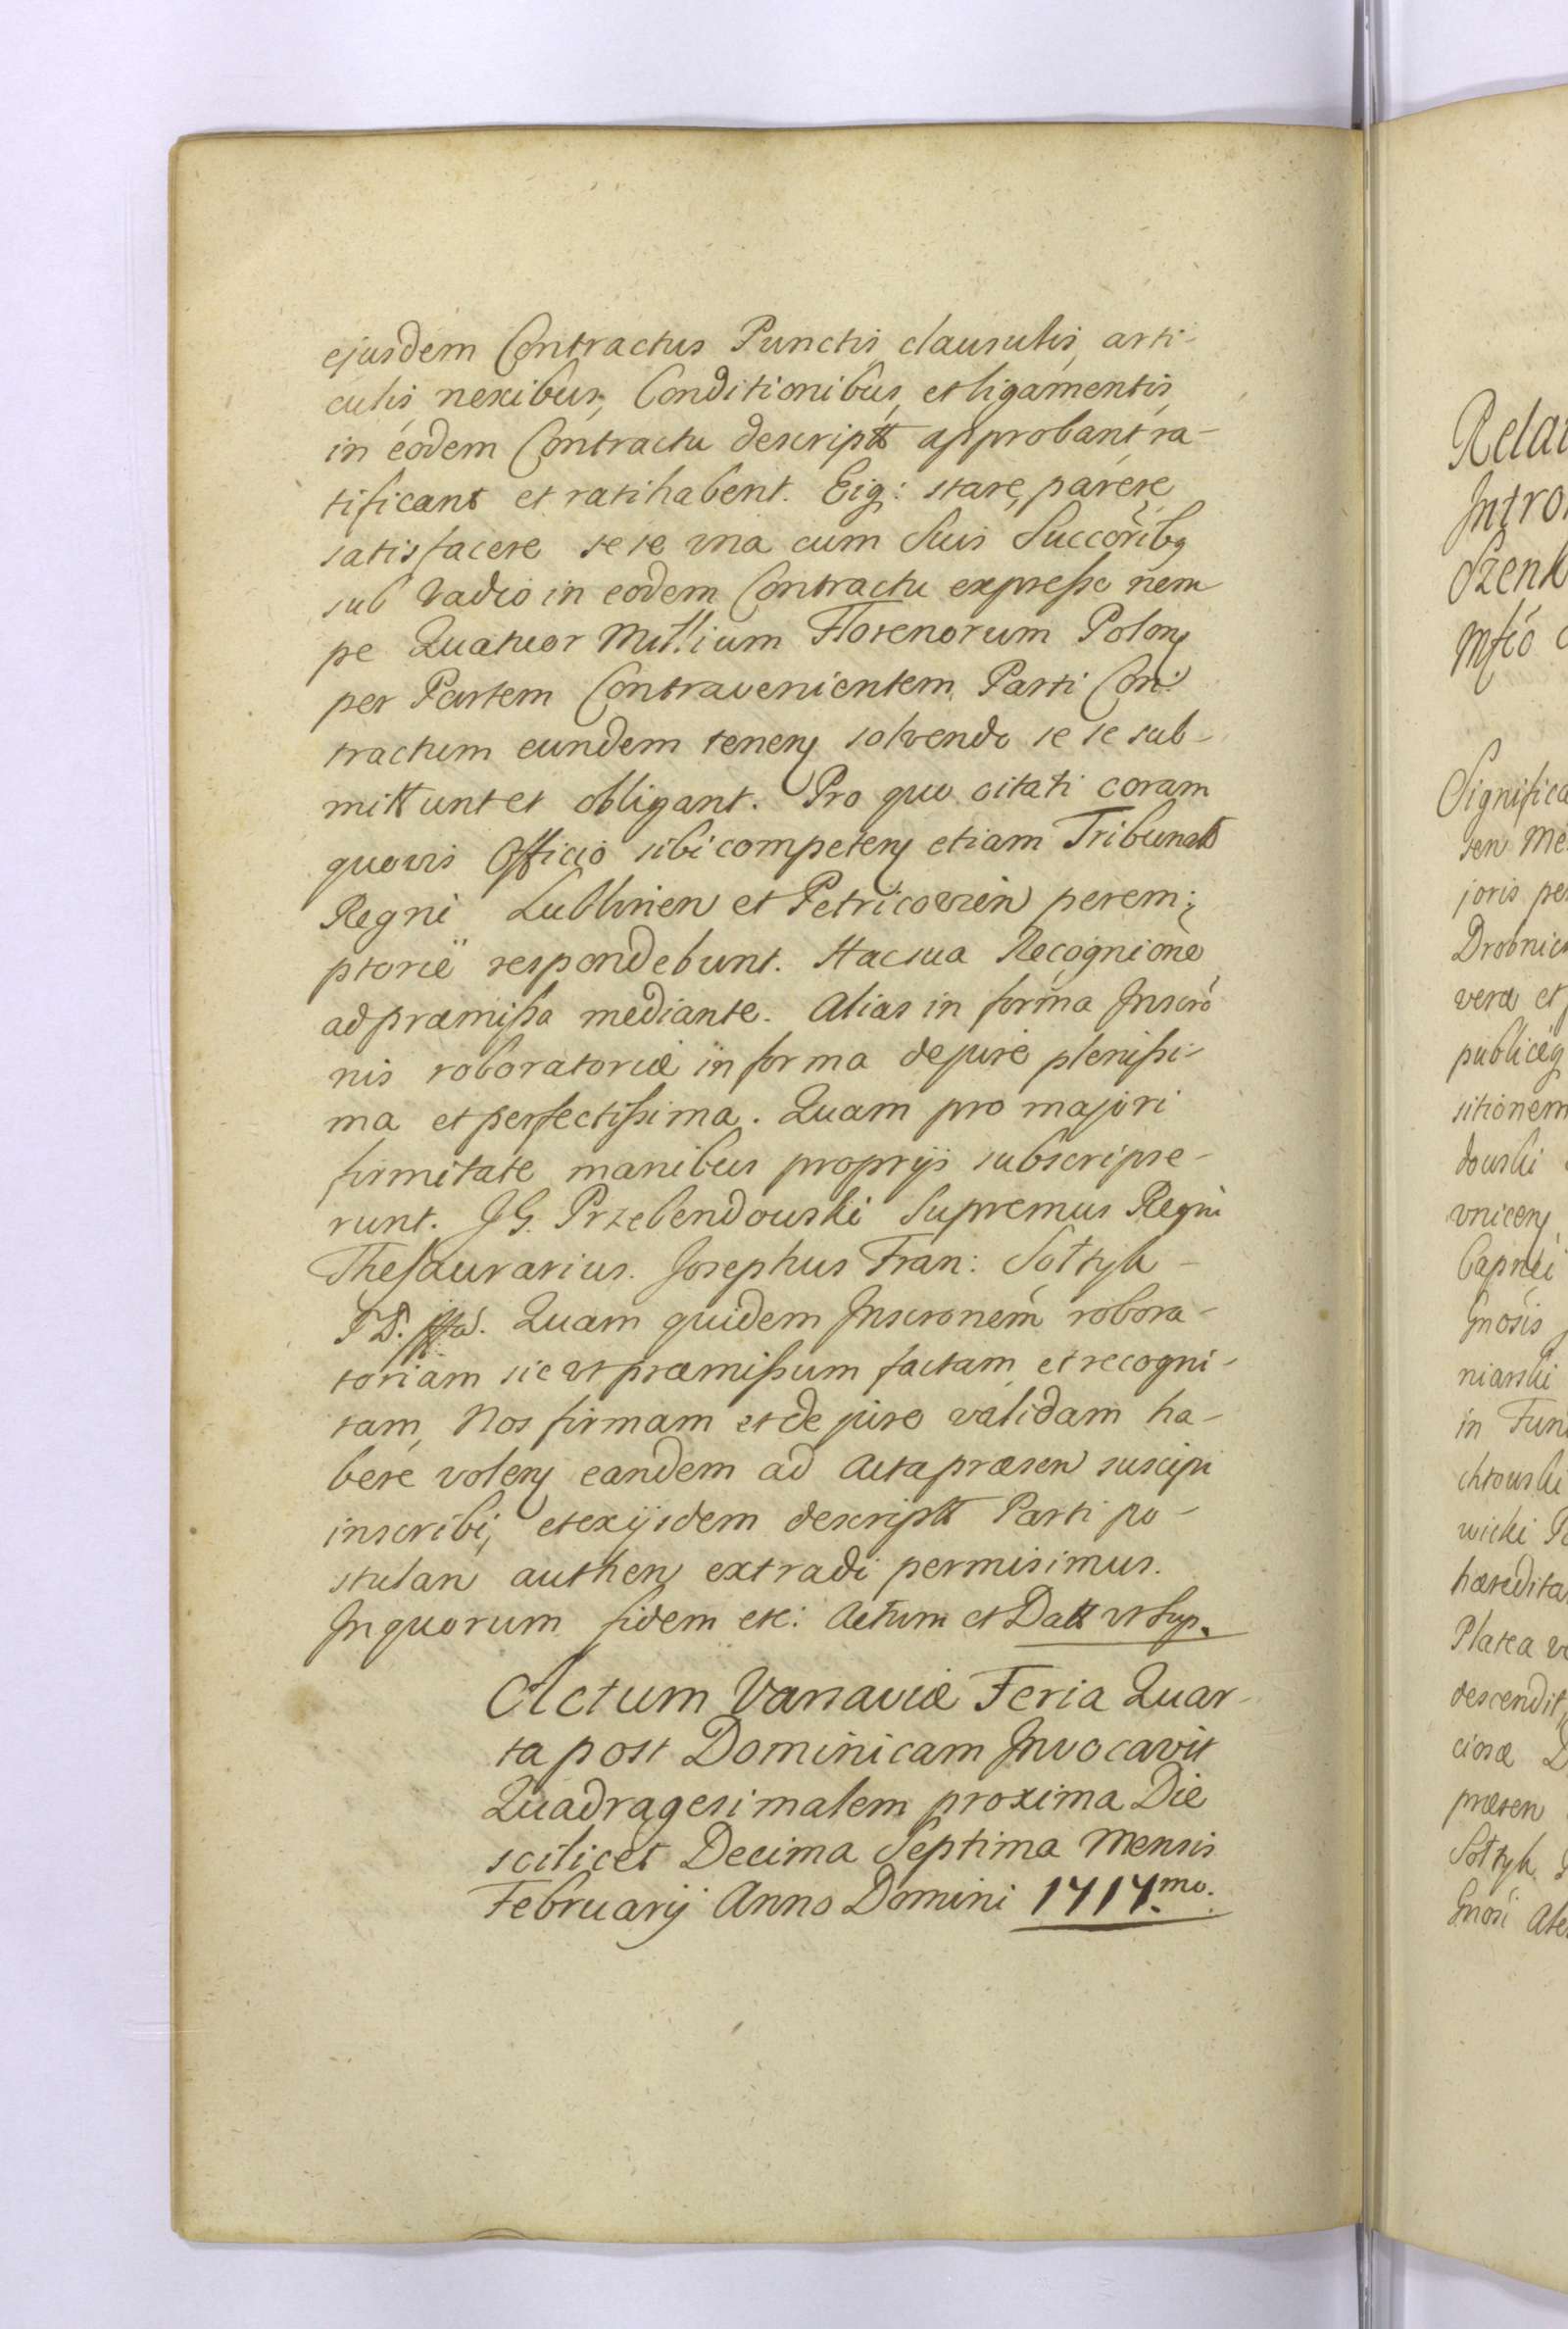 ejusdem Contractus Punctis, clausulis, arti-
culis, nexibus, Conditionibus, et ligamentis,
in eodem Contractu descriptt approbant, ra-
tificant et ratihabent. Eiq: stare, parere,
satisfacere se se vna cum Suis Succoribq
sub Vadio in eodem Contractu expresso nem
pe Quatuor Millium Florenorum Polon
per Partem Contravenientem Parti Con:
tractum eundem tenen solvendo se se sub-
mittunt et obligant. Pro quo citati coram
quovis Officio sibi competen etiam Tribunatt
Regni Lublinien et Petricovien perem:
ptorie respondebunt. Hac sua Recognione
ad præmissa mediante. Alias in forma Inscro
nis roboratoriæ in forma de jure plenissi-
ma et perfectissima. Quam pro majori
firmitate manibus proprijs subscripse-
runt. JG. Przebendouski Supremus Regni
Thesaurarius. Josephus Fran: Sołtyk -
Quam quidem Inscronem robora-
toriam sic vt præmissum factam et recogni-
tam, Nos firmam et de jure validam ha-
bere volen eandem ad Acta præsen suscipi
inscribi, et ex ijsdem descriptt Parti po-
stulan authen extradi permisimus.
In quorum fidem etc: Actum et Datt vt Sup.
Actum Varsaviæ Feria Quar-
ta post Dominicam Invocavit
Quadragesimalem proxima Die
scilicet Decima Septima Mensis
Februarij Anno Domini 1717.mo.
Relat
Intro
Mfco
Significa
joris per
Drobnic
veræ et p
publiceq
sitionem
douski
vnicen
Capnei
Gnosis
niarski
in Fun
chrouski
wicki
hæredita
Platea
descendit
ciosæ
præsen
Sołtyk
Gnosi